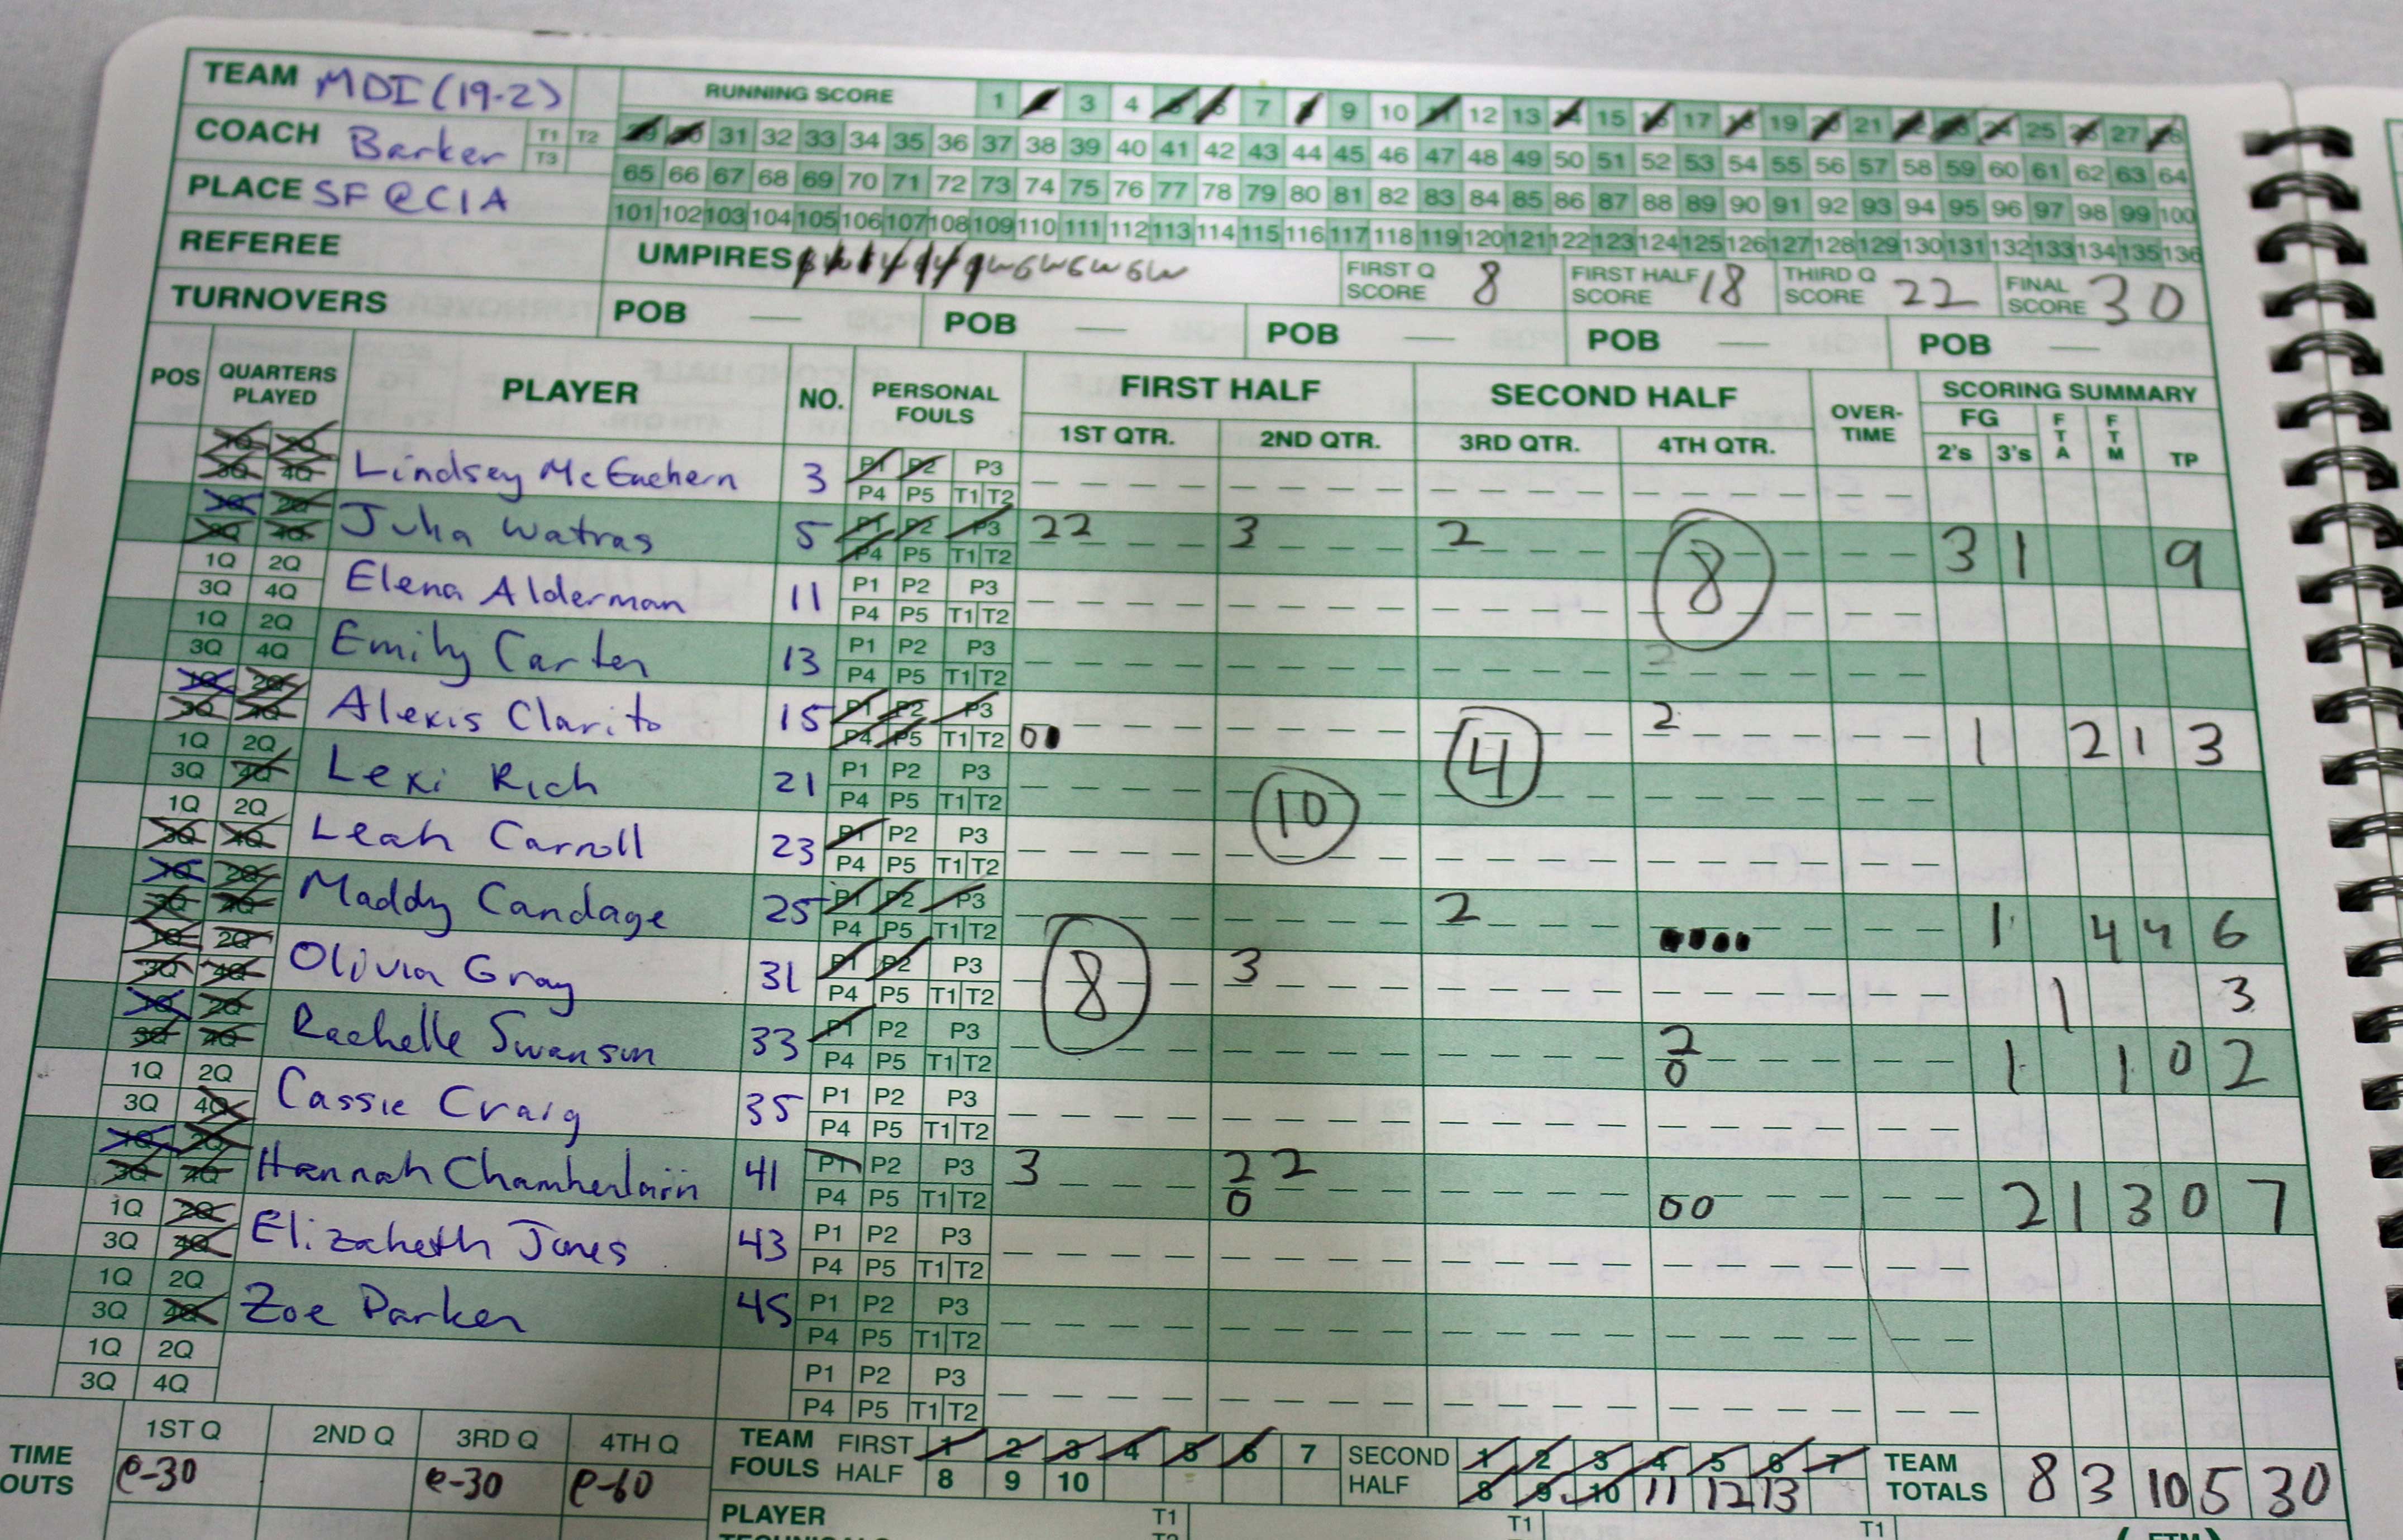 TEAM MDI (19-2)
RUNNING SCORE 1 2 3 4 5 6 7 8 9 10 11 12 13 14 15 16 17 18 19 20 21 22 23 24 25 26 27 28
COACH Barker T1 T2 T3
29 30 31 32 33 34 35 36 37 38 39 40 41 42 43 44 45 46 47 48 49 50 51 52 53 54 55 56 57 58 59 60 61 62 63 64
PLACE SF @ CIA
65 66 67 68 69 70 71 72 73 74 75 76 77 78 79 80 81 82 83 84 85 86 87 88 89 90 91 92 93 94 95 96 97 98 99 100
101 102 103 104 105 106 107 108 109 110 111 112 113 114 115 116 117 118 119 120 121 122 123 124 125 126 127 128 129 130 131 132 133 134 135 136
REFEREE
UMPIRES
FIRST Q SCORE 8 FIRST HALF SCORE 18 THIRD Q SCORE 22 FINAL SCORE 30
TURNOVERS POB — POB — POB — POB — POB —
POS QUARTERS PLAYED PLAYER NO. PERSONAL FOULS FIRST HALF SECOND HALF OVER-TIME SCORING SUMMARY
1ST QTR. 2ND QTR. 3RD QTR. 4TH QTR. FG 2's 3's FTA FTM TP
1Q 2Q 3Q 4Q Lindsey McEachern 3 P1 P2 P3 P4 P5 T1 T2
1Q 2Q 3Q 4Q Julia Watras 5 P1 P2 P3 P4 P5 T1 T2 2 2 3 2 8 3 1 9
1Q 2Q 3Q 4Q Elena Alderman 11 P1 P2 P3 P4 P5 T1 T2
1Q 2Q 3Q 4Q Emily Carter 13 P1 P2 P3 P4 P5 T1 T2 2
1Q 2Q 3Q 4Q Alexis Clarito 15 P1 P2 P3 P4 P5 T1 T2 4 2 1 2 1 3
1Q 2Q 3Q 4Q Lexi Rich 21 P1 P2 P3 P4 P5 T1 T2 10
1Q 2Q 3Q 4Q Leah Carroll 23 P1 P2 P3 P4 P5 T1 T2
1Q 2Q 3Q 4Q Maddy Candage 25 P1 P2 P3 P4 P5 T1 T2 2 1 4 4 6
1Q 2Q 3Q 4Q Olivia Gray 31 P1 P2 P3 P4 P5 T1 T2 8 3 1 3
1Q 2Q 3Q 4Q Rachelle Swanson 33 P1 P2 P3 P4 P5 T1 T2 2 0 1 1 0 2
1Q 2Q 3Q 4Q Cassie Craig 35 P1 P2 P3 P4 P5 T1 T2
1Q 2Q 3Q 4Q Hannah Chamberlain 41 P1 P2 P3 P4 P5 T1 T2 3 2 2 0 0 0 2 1 3 0 7
1Q 2Q 3Q 4Q Elizabeth Jones 43 P1 P2 P3 P4 P5 T1 T2
1Q 2Q 3Q 4Q Zoe Parker 45 P1 P2 P3 P4 P5 T1 T2
1Q 2Q 3Q 4Q P1 P2 P3 P4 P5 T1 T2
TIME OUTS 1ST Q 2ND Q 3RD Q 4TH Q
e-30 e-30 e-60
TEAM FOULS FIRST HALF 1 2 3 4 5 6 7 8 9 10
SECOND HALF 1 2 3 4 5 6 7 8 9 10 11 12 13
TEAM TOTALS 8 3 10 5 30
PLAYER T1 T1 T1